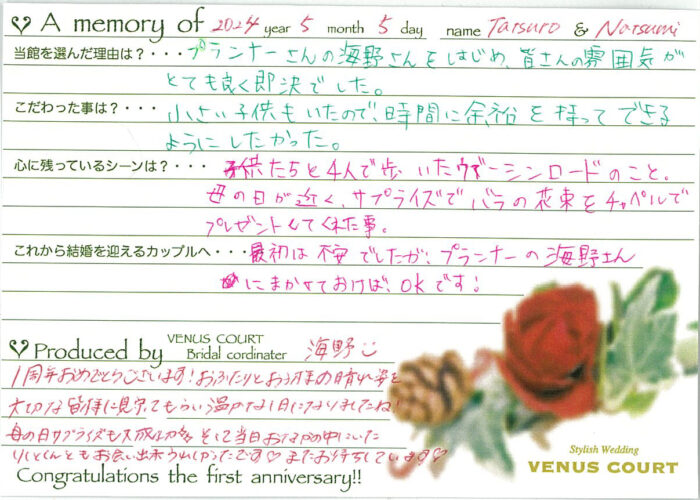 A memory of 2024 year 5 month 5 day name Tatsuro & Natsumi
当館を選んだ理由は?・・・プランナーさんの海野さんをはじめ、皆さんの雰囲気が
とても良く即決でした。
こだわった事は?・・・小さい子供もいたので、時間に余裕を持ってできる
ようにしたかった。
心に残っているシーンは?・・・子供たちと4人で歩いたヴァージンロードのこと。
母の日が近く、サプライズでバラの花束をチャペルで
プレゼントしてくれた事。
これから結婚を迎えるカップルへ・・・最初は不安でしたが、プランナーの海野さん
にまかせておけば、OKです!
Produced by VENUS COURT Bridal cordinater 海野
1周年おめでとうございます!おふたりとお子様の晴れ姿を
大切な皆様に見守ってもらい温かな1日になりましたね!
母の日サプライズも大成功 そして当日おなかの中にいた
くんともお会い出来うれしかったです♡またお待ちしています♡
Congratulations the first anniversary!!
Stylish Wedding
VENUS COURT